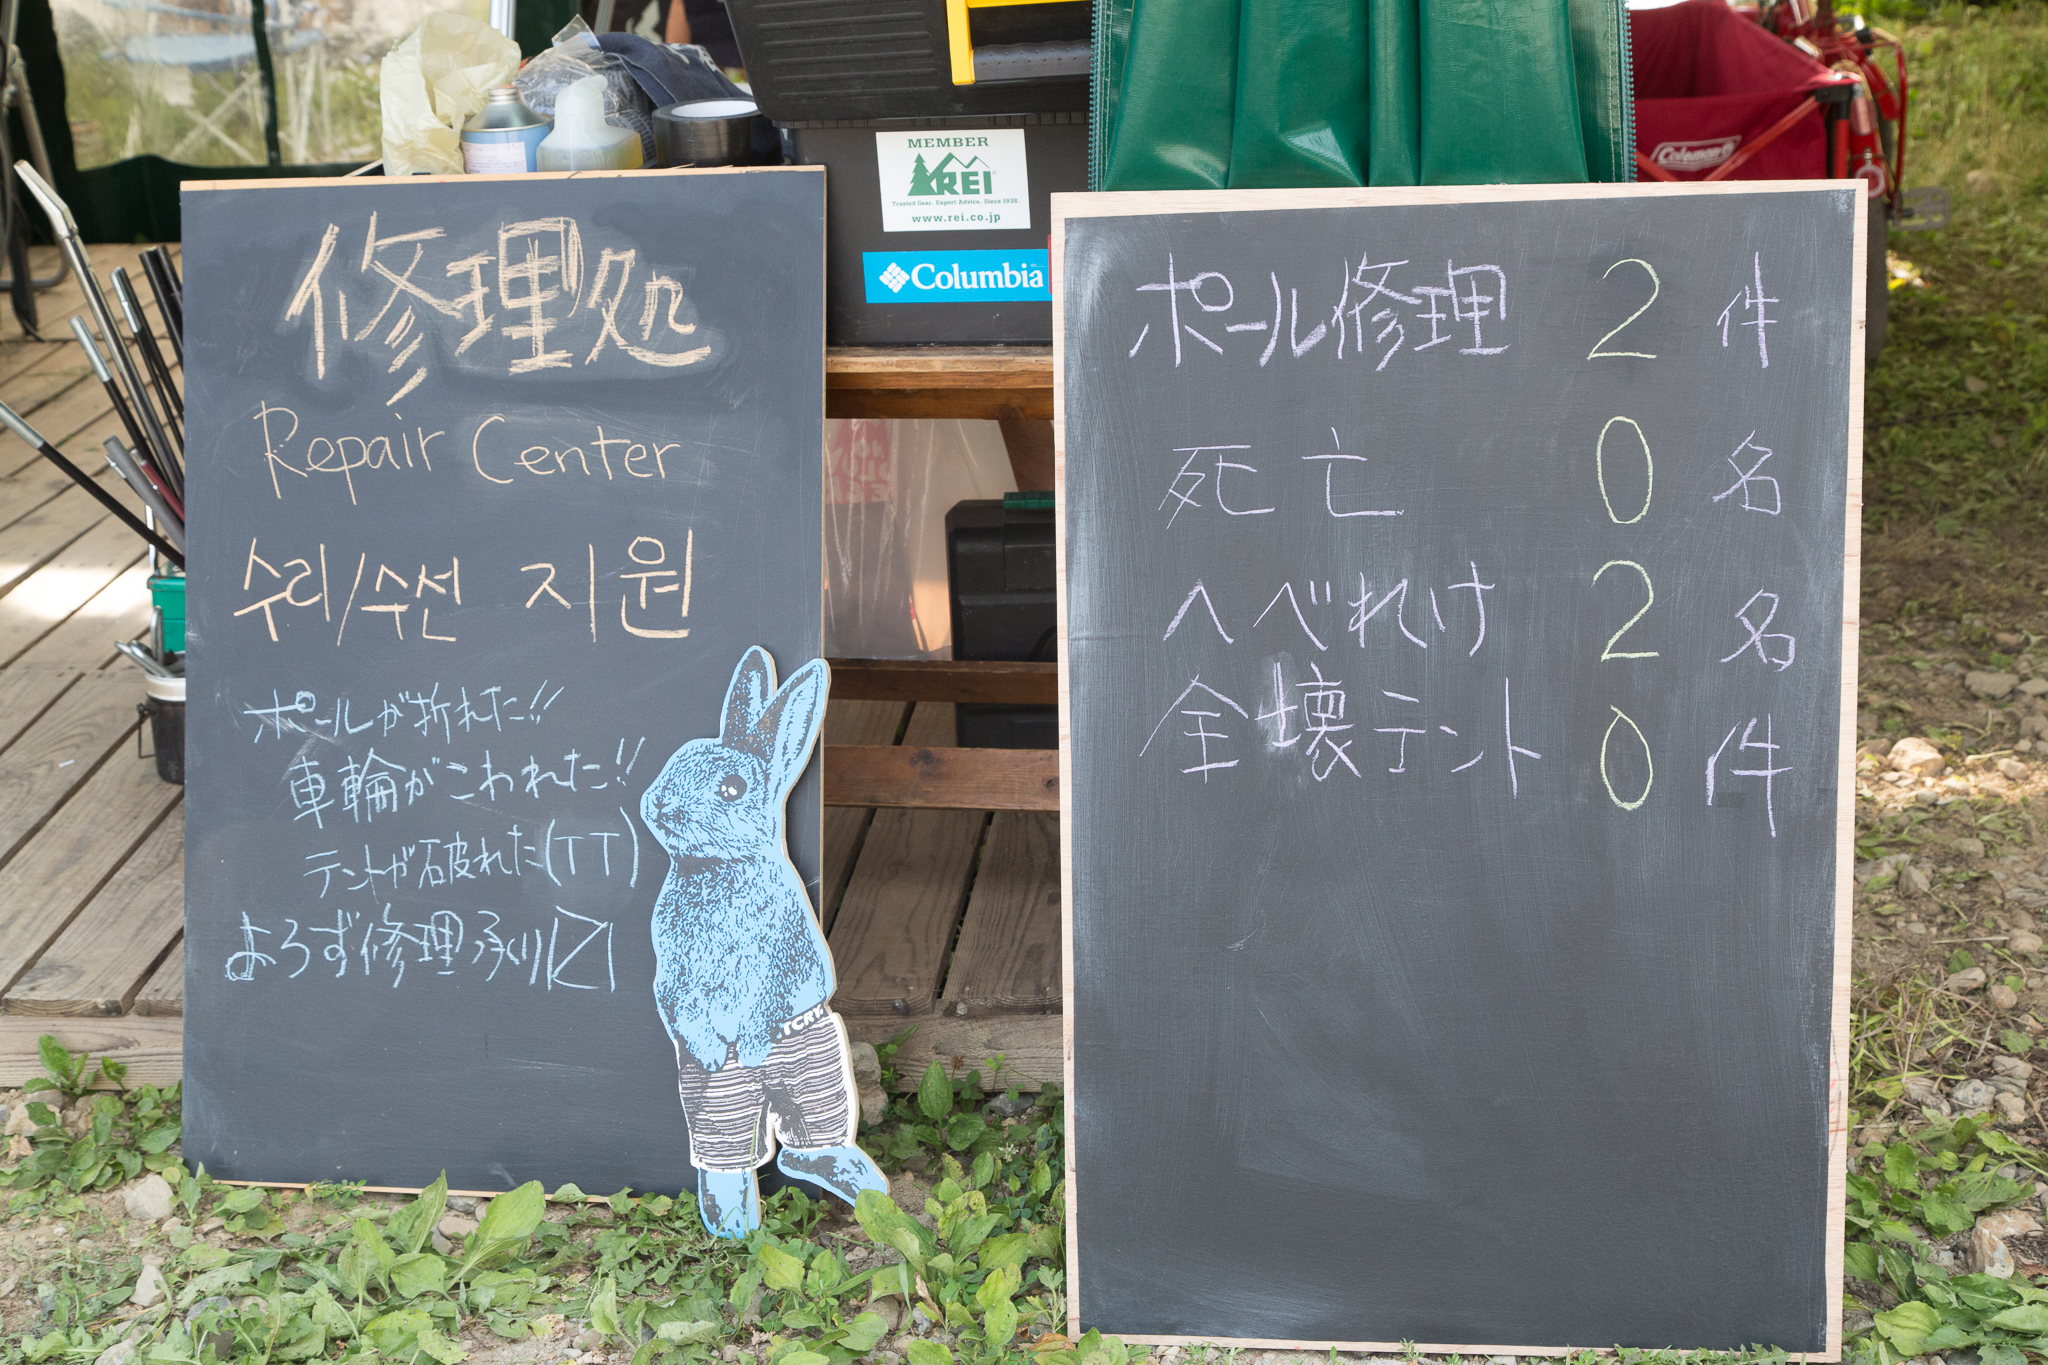 修理処
Repair Center
수리/수선 지원
ポールが折れた!!
車輪がこわれた!!
テントが破れた(TT)
よろず修理承り〼
TCRY
MEMBER
REI
Trusted Gear. Expert Advice. Since 1938.
www.rei.co.jp
Columbia
Coleman
ポール修理 2 件
死亡 0 名
へべれけ 2 名
全壊テント 0 件